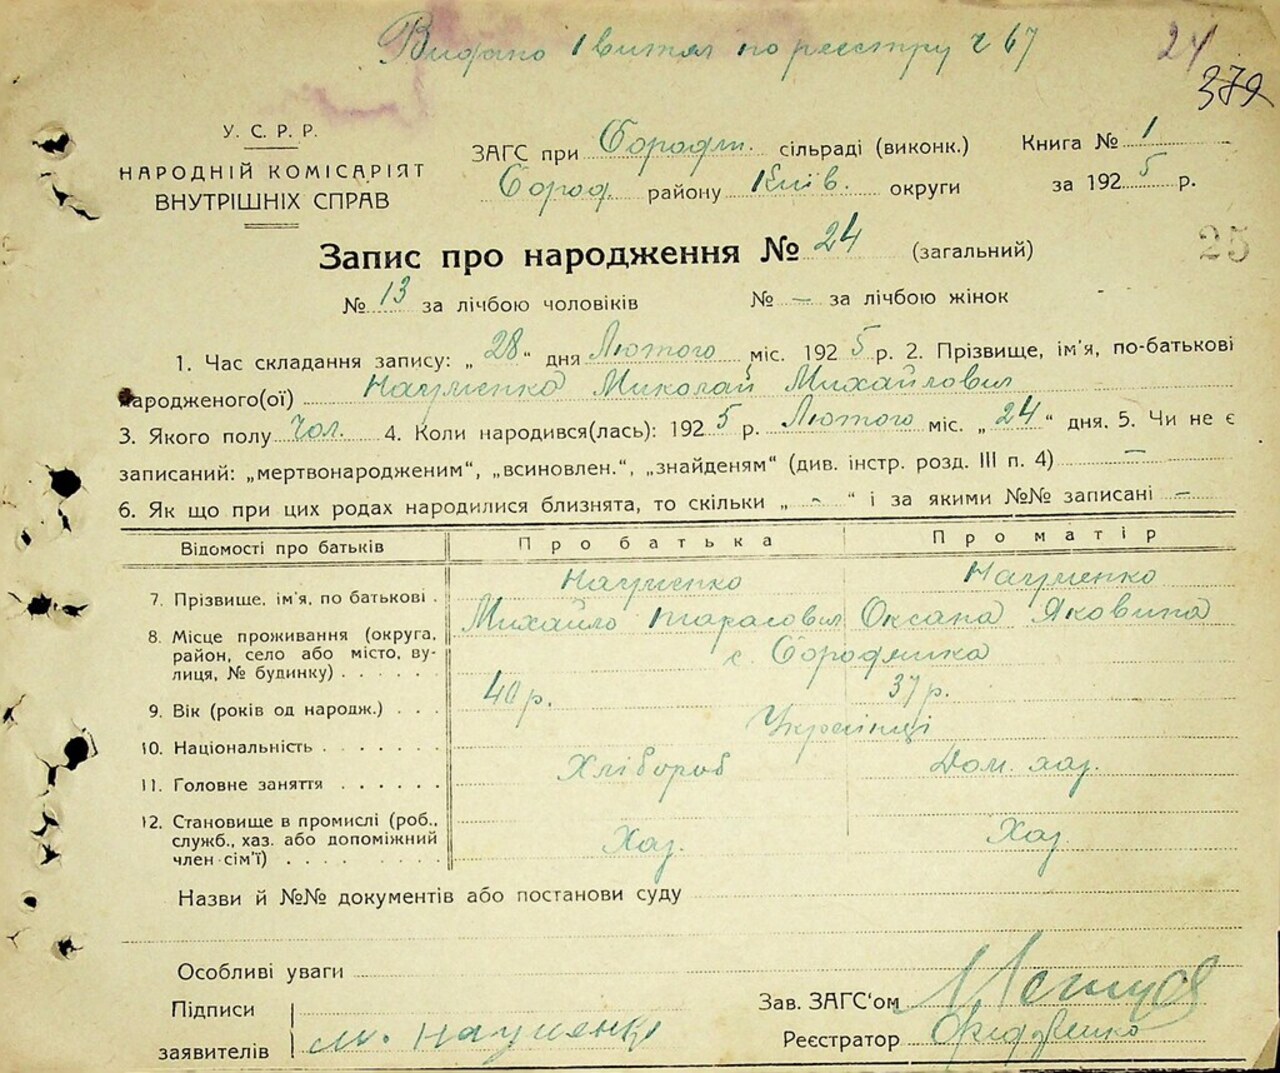 Видано 1 витяг по реєстру № 67
24
379
У. С. Р. Р.
НАРОДНІЙ КОМІСАРІЯТ
ВНУТРІШНІХ СПРАВ
ЗАГС при Бородян. сільраді (виконк.)
Бород. району Київ. округи
Книга № 1
за 1925 р.
25
Запис про народження № 24 (загальний)
№ 13 за лічбою чоловіків № — за лічбою жінок
1. Час складання запису: „28“ дня Лютого міс. 1925 р. 2. Прізвище, ім'я, по-батькові
народженого(ої) Науменко Миколай Михайлович
3. Якого полу Чол. 4. Коли народився(лась): 1925 р. Лютого міс. „24“ дня. 5. Чи не є
записаний: „мертвонародженим“, „всиновлен.“, „знайденям“ (див. інстр. розд. III п. 4) —
6. Як що при цих родах народилися близнята, то скільки „ - “ і за якими №№ записані —
Відомості про батьків Про батька Про матір
7. Прізвище, ім'я, по батькові . Науменко Науменко
Михайло Тарасович Оксана Яковина
8. Місце проживання (округа,
район, село або місто, ву-
лиця, № будинку) . . . . . с. Бородянка
9. Вік (років од народж.) . . . 40 р. 37 р.
10. Національність . . . . . . . Українці
11. Головне заняття . . . . . . Хлібороб Дом. хаз.
12. Становище в промислі (роб.,
служб., хаз. або допоміжний
член сім'ї) . . . . . . . . . Хаз. Хаз.
Назви й №№ документів або постанови суду
Особливі уваги
Підписи
заявителів М. Науменко
Зав. ЗАГС'ом
Реєстратор